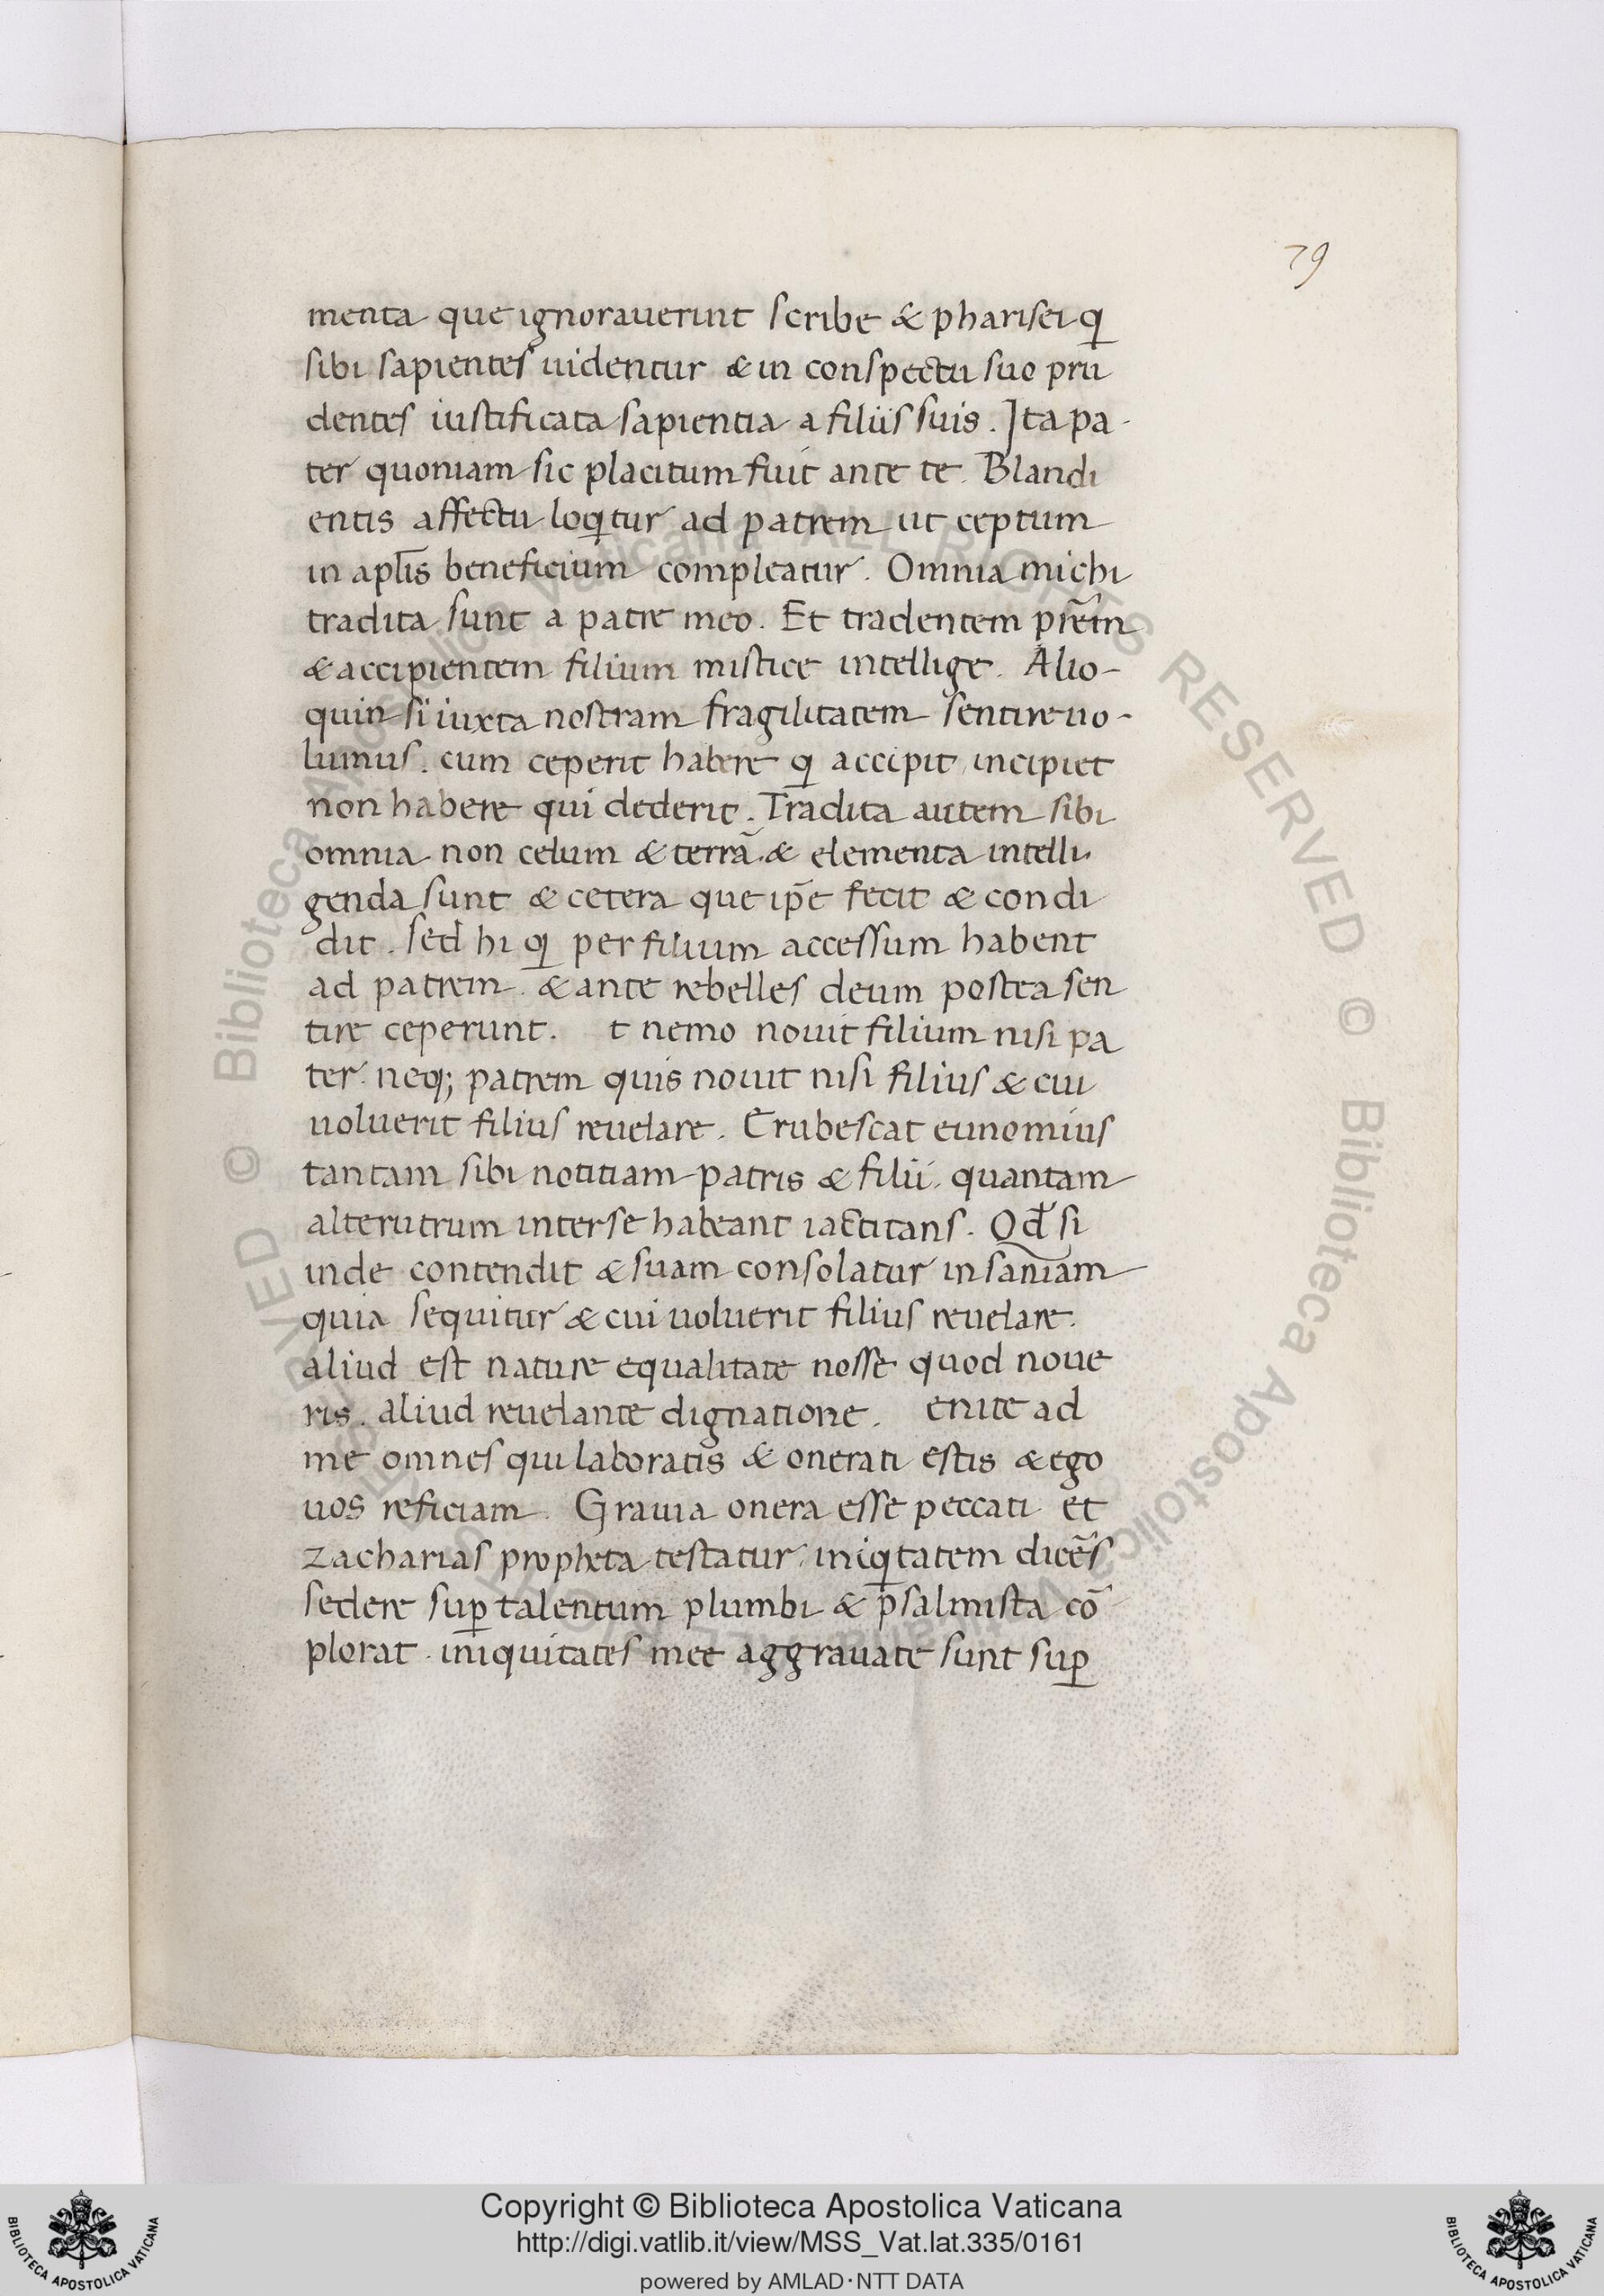 79
menta que ignorauerint scribe & pharisei q
sibi sapientes uidentur & in conspectu suo pru
dentes iustificata sapientia a filiis suis. Ita pa-
ter quoniam sic placitum fuit ante te. Blandi
entis affectu loqtur ad patrem ut ceptum
in apl̄is beneficium compleatur. Omnia michi
tradita sunt a patre meo. Et tradentem pr̄em
& accipientem filium mistice intellige. Alio-
quin si iuxta nostram fragilitatem sentire uo-
lumus. cum ceperit habere q accipit, incipiet
non habere qui dederit. Tradita autem sibi
omnia non celum & terrā. & elementa intelli-
genda sunt & cetera que ip̄e fecit & condi
dit. sed hi q per filium accessum habent
ad patrem. & ante rebelles deum postea sen
tire ceperunt. t nemo nouit filium nisi pa
ter. neq; patrem quis nouit nisi filius & cui
uoluerit filius reuelare. Erubescat eunomius
tantam sibi notitiam patris & filii. quantam
alterutrum inter se habeant iactitans. Qd̄ si
inde contendit & suam consolatur insaniam
quia sequitur & cui uoluerit filius reuelare.
aliud est nature equalitate nosse quod noue
ris. aliud reuelante dignatione. enite ad
me omnes qui laboratis & onerati estis & ego
uos reficiam. Grauia onera esse peccati et
zacharias propheta testatur. iniqtatem dicēs
sedere suꝑ talentum plumbi & psalmista cō
plorat. iniquitates mee aggrauate sunt suꝑ
Copyright © Biblioteca Apostolica Vaticana
http://digi.vatlib.it/view/MSS_Vat.lat.335/0161
powered by AMLAD·NTT DATA
BIBLIOTECA APOSTOLICA VATICANA
BIBLIOTECA APOSTOLICA VATICANA